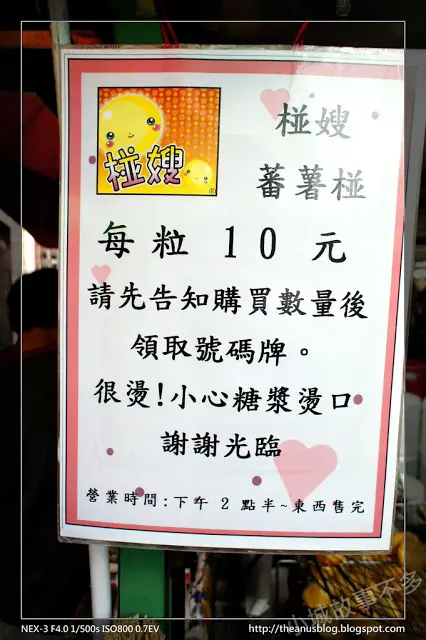 椪嫂
椪嫂
蕃薯椪
每粒 10 元
請先告知購買數量後
領取號碼牌。
很燙!小心糖漿燙口
謝謝光臨
營業時間:下午 2 點半~東西售完
小城故事不多
NEX-3 F4.0 1/500s ISO800 0.7EV
http://theanusblog.blogspot.com